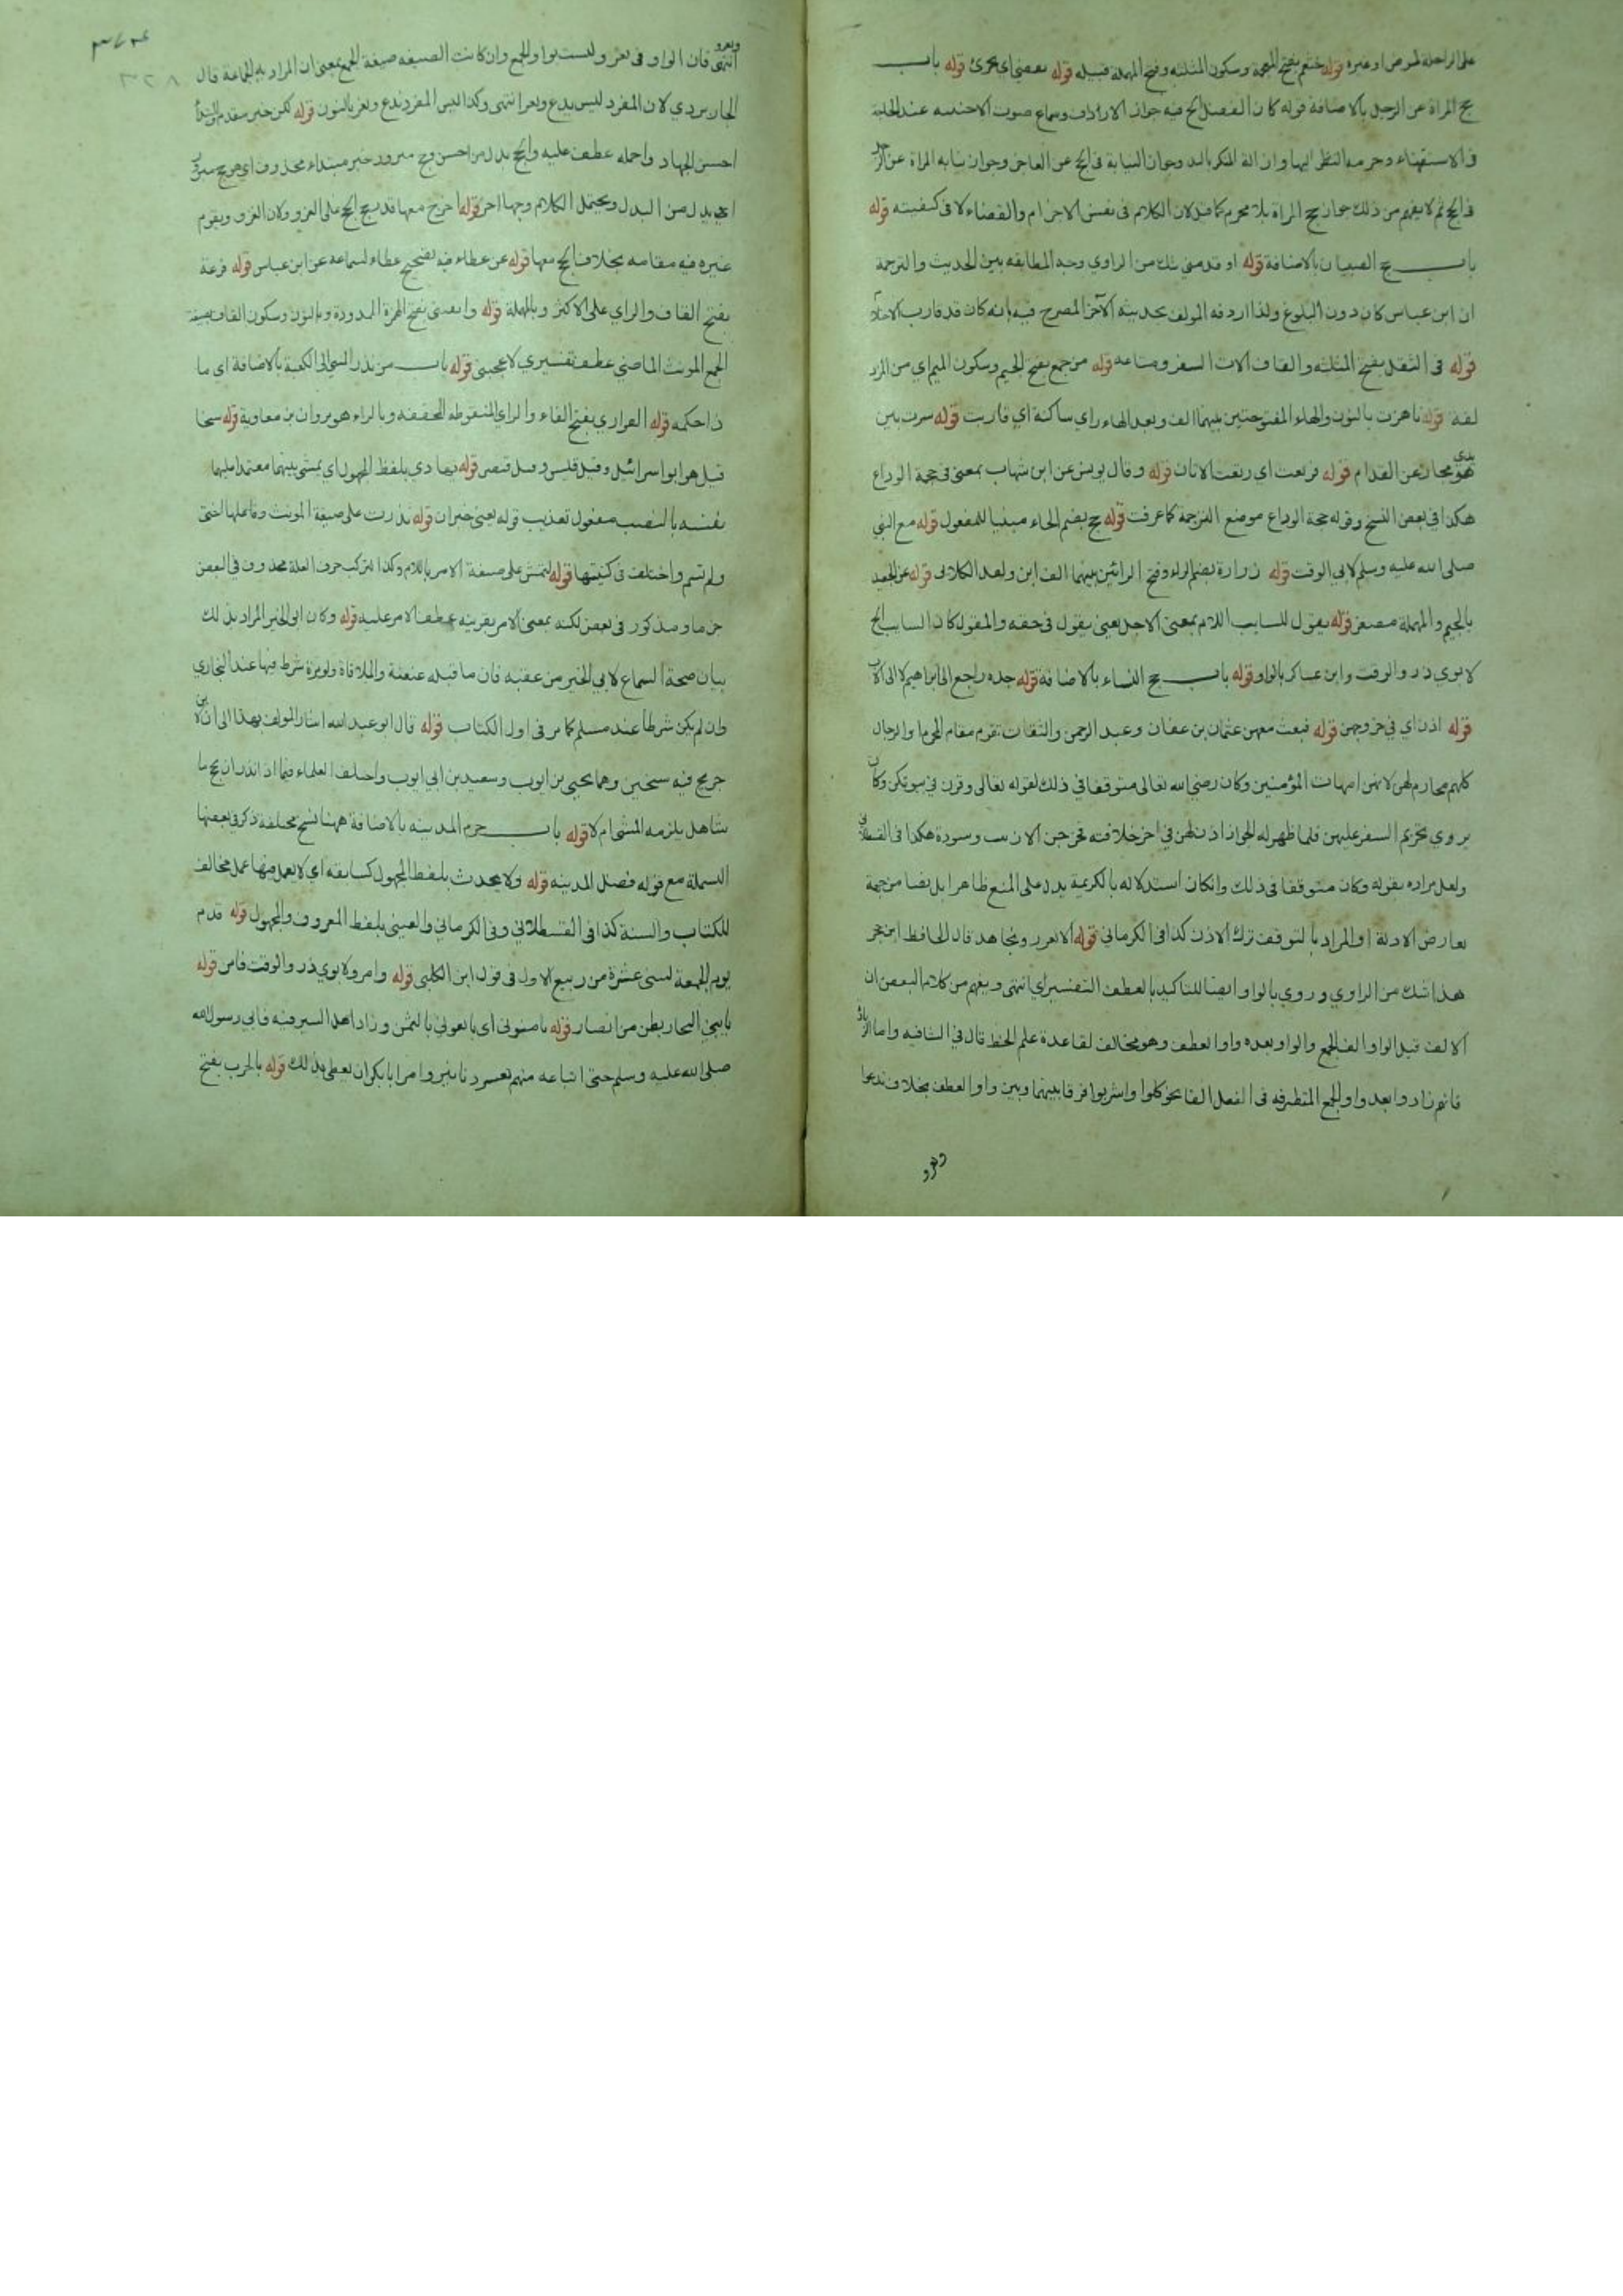 على الراحلة لمرض او غيره قوله خثعم بفتح المعجمة وسكون المثلثه وفتح المهملة قبيله قوله يقضي اي يجزئ قوله باب
حج المراة عن الرجل بالاضافة قوله كان الفضل الخ فيه جواز الارداف وسماع صوت الاجنبيه عند الحاجة
فى الاستفتاء وحرمه النظر اليها وازالة المنكر باليد وجواز النيابة فى الحج عن العاجز وجواز نيابه المراة عن الرجل
فى الحج ثم لا يفهم من ذلك جواز حج المراة بلا محرم كما قيل لان الكلام فى نفس الاجزام والقضاء لا فى كيفيته قوله
باب حج الصبيان بالاضافة قوله او قدمني شك من الراوي وجه المطابقه بين الحديث والترجمة
ان ابن عباس كان دون البلوغ ولذا اردفه المولف بحديثه الآخر المصرح فيه بانه كان قد قارب الاحتلام
قوله فى الثقل بفتح المثلثه والقاف الات السفر ومتاعه قوله من جمع بفتح الجيم وسكون الميم اي من المزد
لفة قوله ناهزت بالنون والهاء المفتوحتين بينهما الف وبعد الهاء زاي ساكنة اي قاربت قوله سرت بين
يدي هو مجاز عن القدام قوله فرتعت اي رتعت الاتان قوله وقال يونس عن ابن شهاب بمعنى فى حجة الوداع
هكذا في بعض النسخ وقوله حجة الوداع موضع الترجمة كما عرفت قوله حج بضم الحاء مبنيا للمفعول قوله مع النبي
صلى الله عليه وسلم لابي الوقت قوله زرارة بضم الزاء وفتح الرائين بينهما الف ابن واعد الكلابى قوله عن الجعيد
بالجيم والمهملة مصغر قوله يقول للسايب اللام بمعنى الاجل يعني يقول فى حقه والمقول كان السايب الخ
لابوي ذر والوقت وابن عساكر بالواو قوله باب حج النساء بالاضافة قوله جده راجع الى ابراهيم لا الى الاب
قوله اذن اي في خروجهن قوله فبعث معهن عثمان بن عفان وعبد الرحمن والثقات تقوم مقام المحرم او الرجال
كلهم محارم لهن لانهن امهات المؤمنين وكان رضي الله تعالى متوقفا في ذلك لقوله تعالى وقرن في بيوتكن وكان
يروي تحريم السفر عليهن فلما ظهر له الجواز اذن لهن في اخر خلافته فخرجن الا زينب وسودة هكذا فى القسطلاني
ولعل مراده بقوله وكان متوقفا فى ذلك وانكان استدلاله بالكريمة يدل على المنع ظاهرا بل نصا من جهة
تعارض الادلة او المراد بالتوقف ترك الاذن كذا فى الكرماني قوله الا نغزو ونجاهد قال الحافظ ابن حجر
هذا شك من الراوي وروي بالواو ايضا للتاكيد بالعطف التفسيراي انتهى ويفهم من كلام البعض ان
الالف قبل الواو الف الجمع والواو بعده واو العطف وهو مخالف لقاعدة علم الخط قال في الشافيه واما الزيادة
فانهم زادوا بعد واو الجمع المتطرفه فى الفعل الفا نحو كلوا واشربوا فرقا بينهما وبين واو العطف بخلاف ندعوا
ونغزو
٣٢٨
ونغزو انتهى فان الواو فى نغزو ليست بواو الجمع وان كانت الصيغه صيغة الجمع بمعنى ان المراد به الجماعة قال
الجاربردي لان المفرد ليس يدع ويغز انتهى وكذا ليس المفرد ندع ونغز بالنون قوله لكن خبر مقدم المبتدأ
احسن الجهاد واجمله عطف عليه والحج بدل من احسن وحج مبرور خبر مبتداء محذوف اي هو حج مبرور
او بدل من البدل ويحتمل الكلام وجها اخر قوله اخرج معها قدم حج الحج على الغزو ولان الغزو يقوم
غيره فيه مقامه بخلاف الحج معها قوله عن عطاء فيه تصحيح عطاء لسماعه عن ابن عباس قوله قزعة
بفتح القاف والزاي على الاكثر وبالمهملة قوله وانقنني بفتح الهمزة الممدودة وبالنون وسكون القاف بصيغة
الجمع المونث الماضي عطف تفسيري لاعجبنني قوله باب من نذر المشي الى الكعبة بالاضافة اي ما
ذا حكمه قوله الفزاري بفتح الفاء والزاي المنقوطه المخففه وبالراء هو مروان بن معاوية قوله شيخا
قيل هو ابو اسرائيل وقيل قيس وقيل قيصر قوله يهادى بلفظ المجهول اي يمشي بينهما معتمدا عليهما
نفسه بالنصب مفعول تعذيب قوله لغني خبر ان قوله نذرت على صيغة المونث وفاعلها اختي
ولم تسم واختلف فى كنيتها قوله لتمش على صيغة الامر باللام وكذا لتركب حرف العلة محذوف فى البعض
جزما ومذكور فى بعض لكنه بمعنى الامر بقرينه عطف الامر عليه قوله وكان ابو الخير المراد بذلك
بيان صحة السماع لابي الخير من عقبه فان ما قبله عنعنة والملاقاة ولو مرة شرط فيها عند البخاري
وان لم يكن شرطا عند مسلم كما مر فى اول الكتاب قوله قال ابو عبد الله اشار المولف بهذا الى ان لابن
جريج فيه شيخين وهما يحيى بن ايوب وسعيد بن ابي ايوب واختلف العلماء فيما اذا نذر ان يحج ما
شيا هل يلزمه المشي ام لا قوله باب حرم المدينه بالاضافة ههنا نسخ مختلفة ذكر فى بعضها
البسملة مع قوله فضل المدينه قوله ولا يحدث بلفظ المجهول كسابقه اي لا يعمل فيها عمل مخالف
للكتاب والسنة كذا فى القسطلاني وفى الكرماني والعيني بلفظ المعروف والمجهول قوله قدم
يوم الجمعة لثنتي عشرة من ربيع الاول فى قول ابن الكلبي قوله وامر ولابوي ذر والوقت فامر قوله
يا بني النجار بطن من انصار قوله ثامنوني اي بايعوني بالثمن وزاد اهل السير فيه فابى رسول الله
صلى الله عليه وسلم حتى ابتاعه منهم بعشرة دنانير وامر ابا بكر ان يعطي ذلك قوله بالخرب بفتح